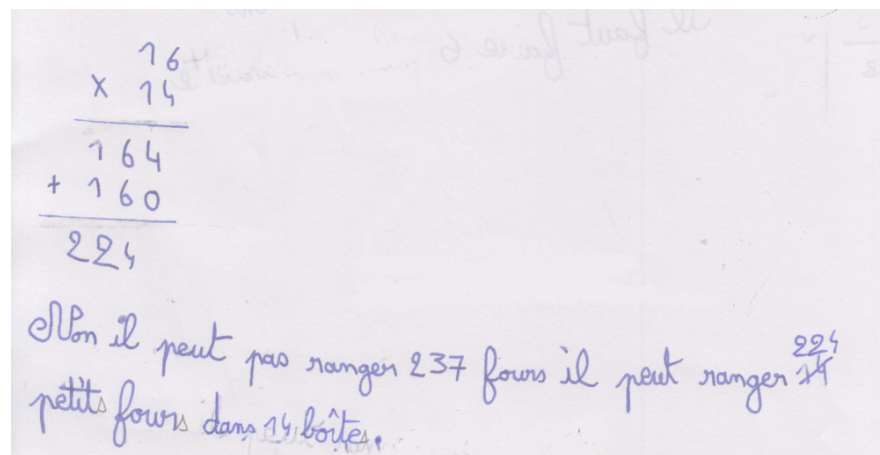 16
x 14
164
+ 160
224
Non il peut pas ranger 237 fours il peut ranger 224
petits fours dans 14 boîtes.